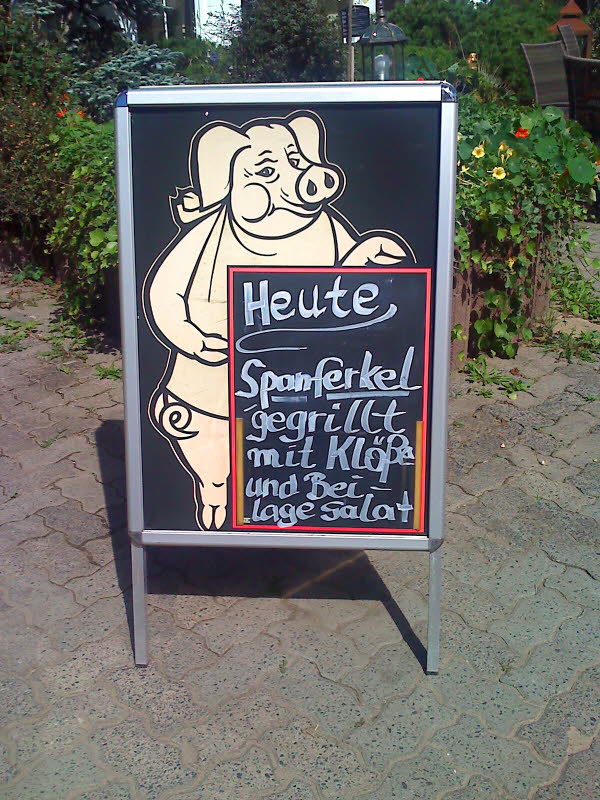 Heute
Spanferkel
gegrillt
mit Klöße
und Bei-
lage salat